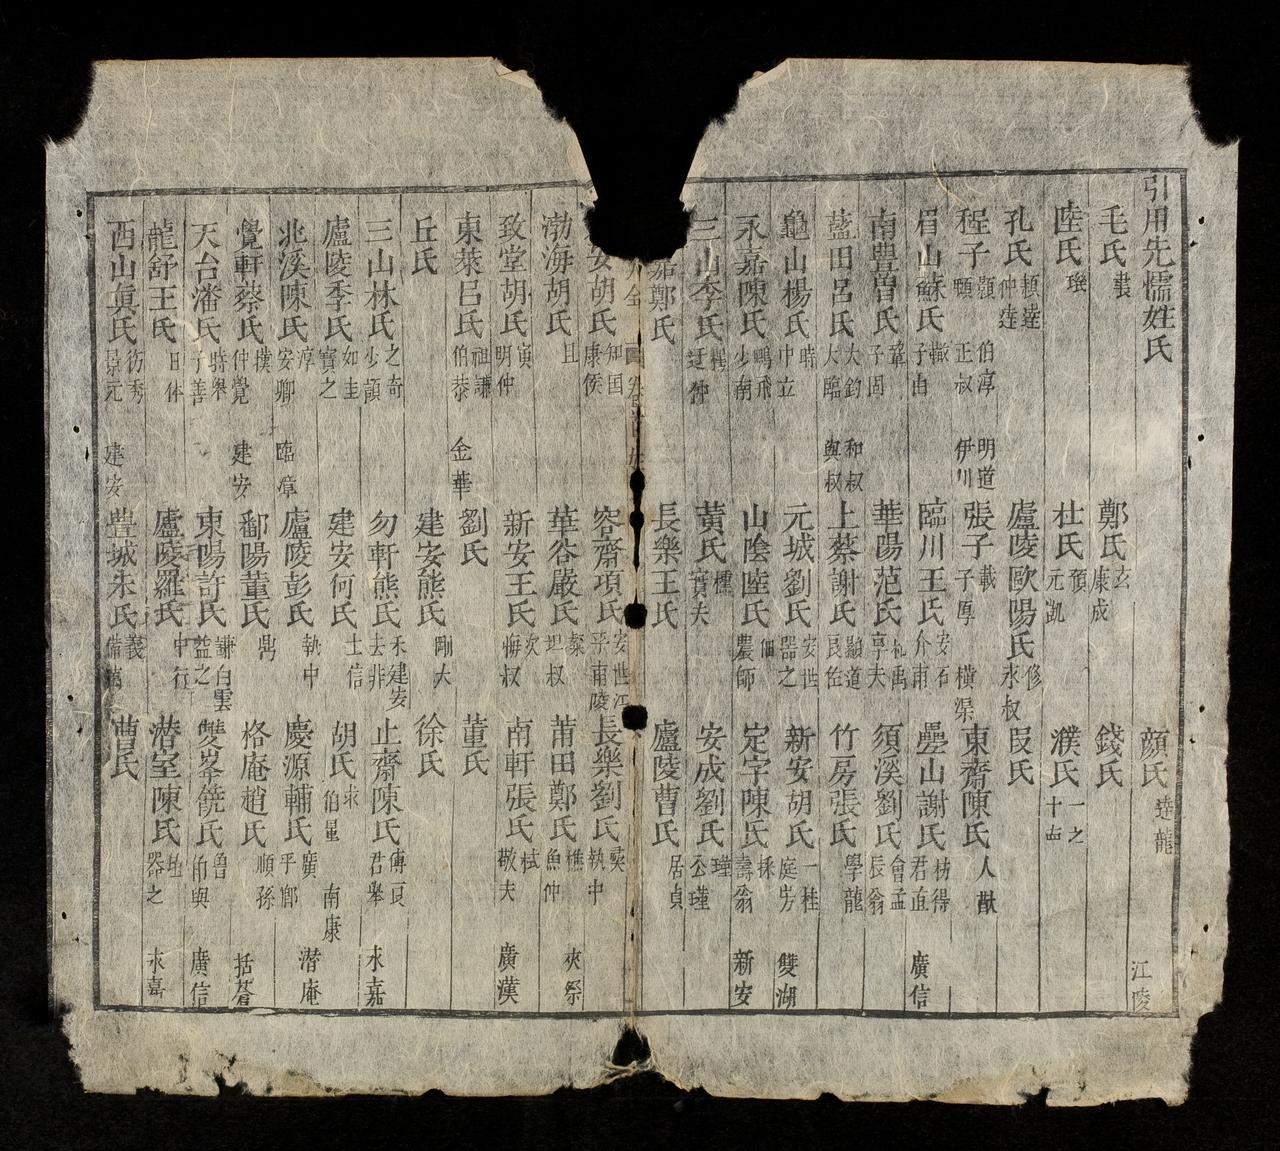 引用先儒姓氏 顔氏 達龍 江陵
毛氏 萇 鄭氏 玄 康成 錢氏
陸氏 璣 杜氏 預 元凱 濮氏 一之 十占
孔氏 頴達 仲達 廬陵歐陽氏 修 永叔 叚氏
程子 顥 頤 伯淳 正叔 明道 伊川 張子 載 子厚 橫渠 東齋陳氏 人猷
眉山蘇氏 轍 子由 臨川王氏 安石 介甫 疊山謝氏 枋得 君直 廣信
南豊曽氏 鞏 子固 華陽范氏 祖禹 享夫 須溪劉氏 會孟 辰翁
藍田呂氏 大鈞 大臨 和叔 與叔 上蔡謝氏 顯道 良佐 竹房張氏 學龍
龜山楊氏 時 中立 元城劉氏 安世 器之 新安胡氏 一桂 庭芳 雙湖
永嘉陳氏 鵬飛 少南 山陰陸氏 佃 農師 定字陳氏 採 壽翁 新安
三山李氏 樗 迂仲 黃氏 櫄 實夫 安成劉氏 瑾 公瑾
嘉鄭氏 長樂王氏 廬陵曹氏 居貞
安胡氏 知国 康侯 容齋項氏 安世 平甫 江陵 長樂劉氏 奕 執中
渤海胡氏 旦 華谷嚴氏 粲 坦叔 莆田鄭氏 樵 魚仲 夾漈
致堂胡氏 寅 明仲 新安王氏 炎 晦叔 南軒張氏 栻 敬夫 廣漢
東萊呂氏 祖謙 伯恭 金華 劉氏 董氏
丘氏 建安熊氏 剛大 徐氏
三山林氏 之奇 少頴 勿軒熊氏 禾 去非 建安 止齋陳氏 傅良 君舉 永嘉
廬陵季氏 如圭 寶之 建安何氏 士信 胡氏 求 伯量 南康
北溪陳氏 淳 安卿 臨漳 廬陵彭氏 執中 慶源輔氏 廣 平郷 潜庵
覺軒蔡氏 模 仲覺 建安 鄱陽董氏 鼎 格庵趙氏 順孫 括蒼
天台潘氏 時舉 子善 東陽許氏 謙 益之 白雲 雙峯饒氏 魯 伯輿 廣信
龍舒王氏 日休 廬陵羅氏 中行 潜室陳氏 埴 器之 永嘉
西山眞氏 徳秀 景元 建安 豊城朱氏 義 備萬 曹氏